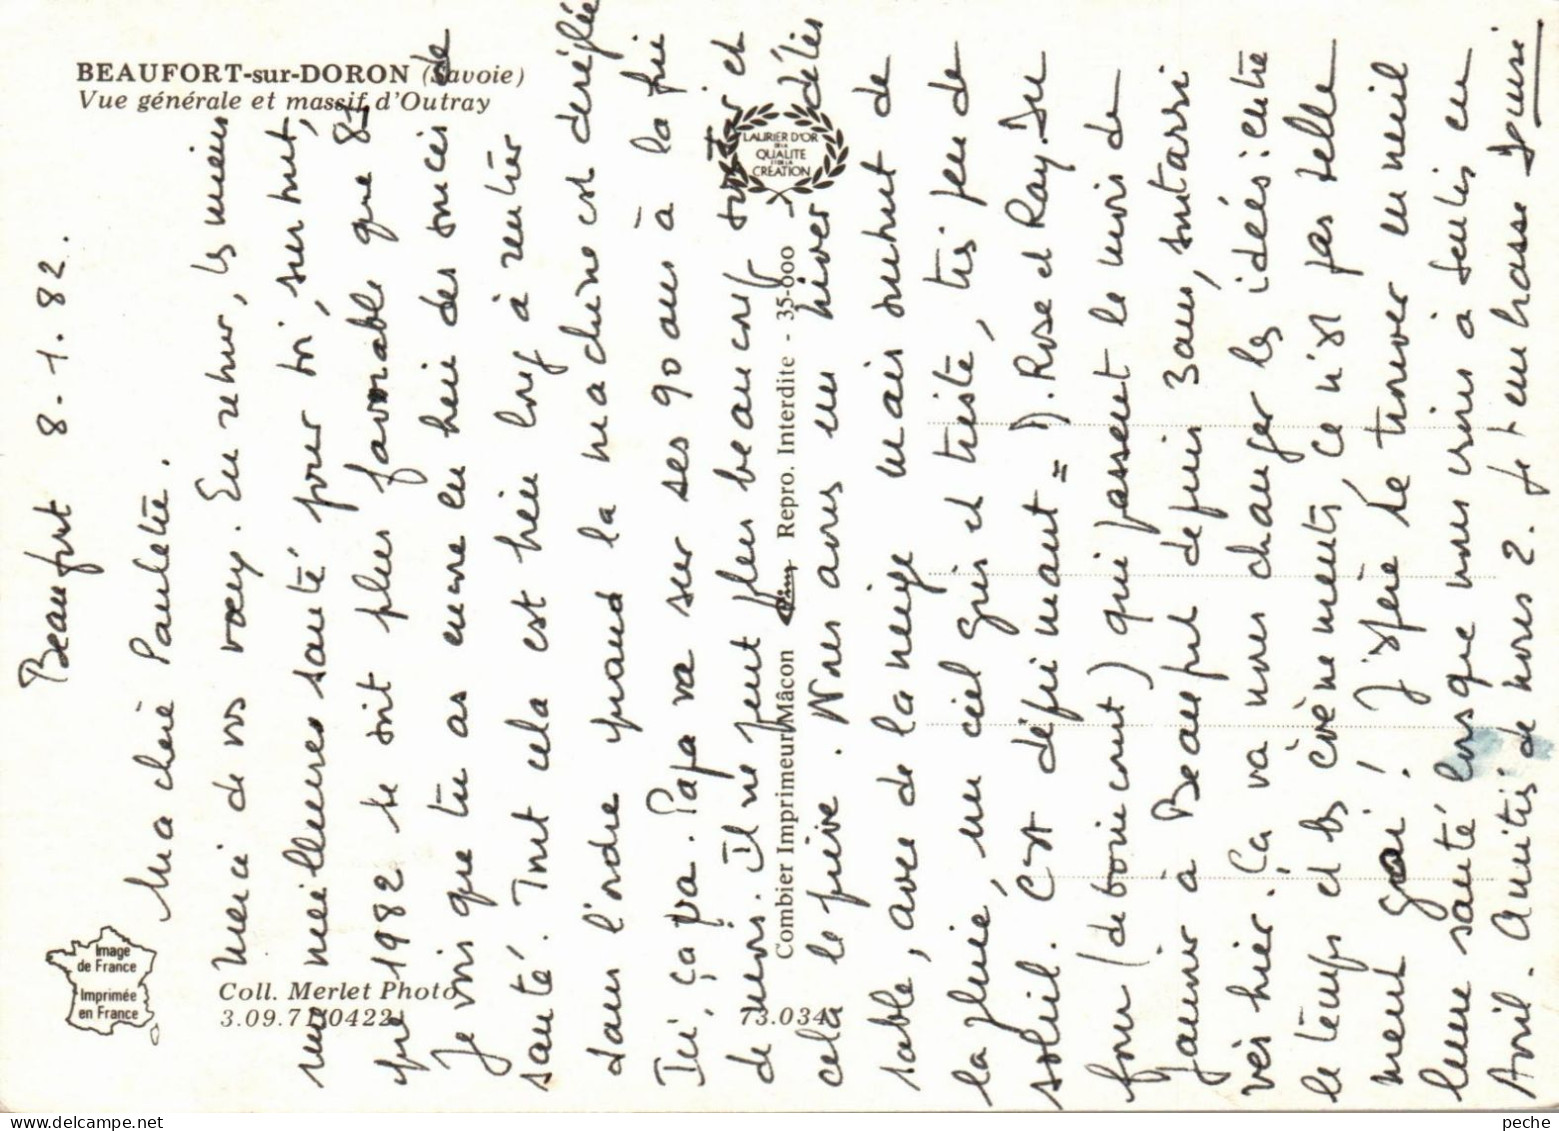 BEAUFORT-sur-DORON (Savoie)
Vue générale et massif d'Outray
LAURIER D'OR
DE LA
QUALITE
ET DE LA
CREATION
Image
de France
Imprimée
en France
Coll. Merlet Photo
3.09.71.0422
73.034
Combier Imprimeur Mâcon Repro. Interdite - 35-000
Beaufort 8-1.82.
Ma chère Paulette.
Merci de vos voeux. En retour, les miens
une meilleures santé pour toi, surtout,
que 1982 te soit plus favorable que 81
Je vois que tu as encore eu bien des soucis de
santé. Tout cela est bien long à rentrer
dans l'ordre quand la machine est déréglée
Ici, ça va. Papa va sur ses 90 ans à la fin
de mois. Il ne peut plus beaucoup sortir et
cela le prive. Nous avons un hiver
sable, avec de la neige mais surtout de
la pluie, un ciel gris et triste, très peu de
soleil. C'est déprimant = D. Rose et Ray. Du
four (de Boincourt) qui passent le mois de
janvier à Beaufort depuis 3 ans, sont arri
vés hier. Ça va nous changer les idées: entre
le temps et les évènements, ce n'est pas telle
ment gai! J'espère te trouver en meil
leure santé lorsque nous irons à Senlis en
Avril. Amitiés de nous 2. Je t'embrasse